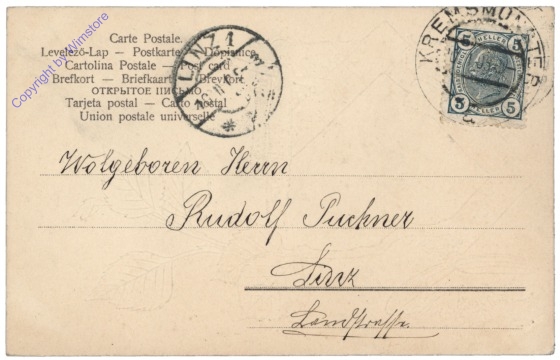 Carte Postale.
Levelező-Lap — Postkarte — Dopisnice
Cartolina Postale — Post card
Brefkort — Briefkaart — Brevkort
ОТКРЫТОЕ ПИСЬМО
Tarjeta postal — Carto postal
Union postale universelle
Copyright by Wimstore
LINZ 1
KREMSMÜNSTER
5 HELLER 5
5 HELLER 5
Wolgeboren Herrn
Rudolf Puchner
Linz
Landstrasse.